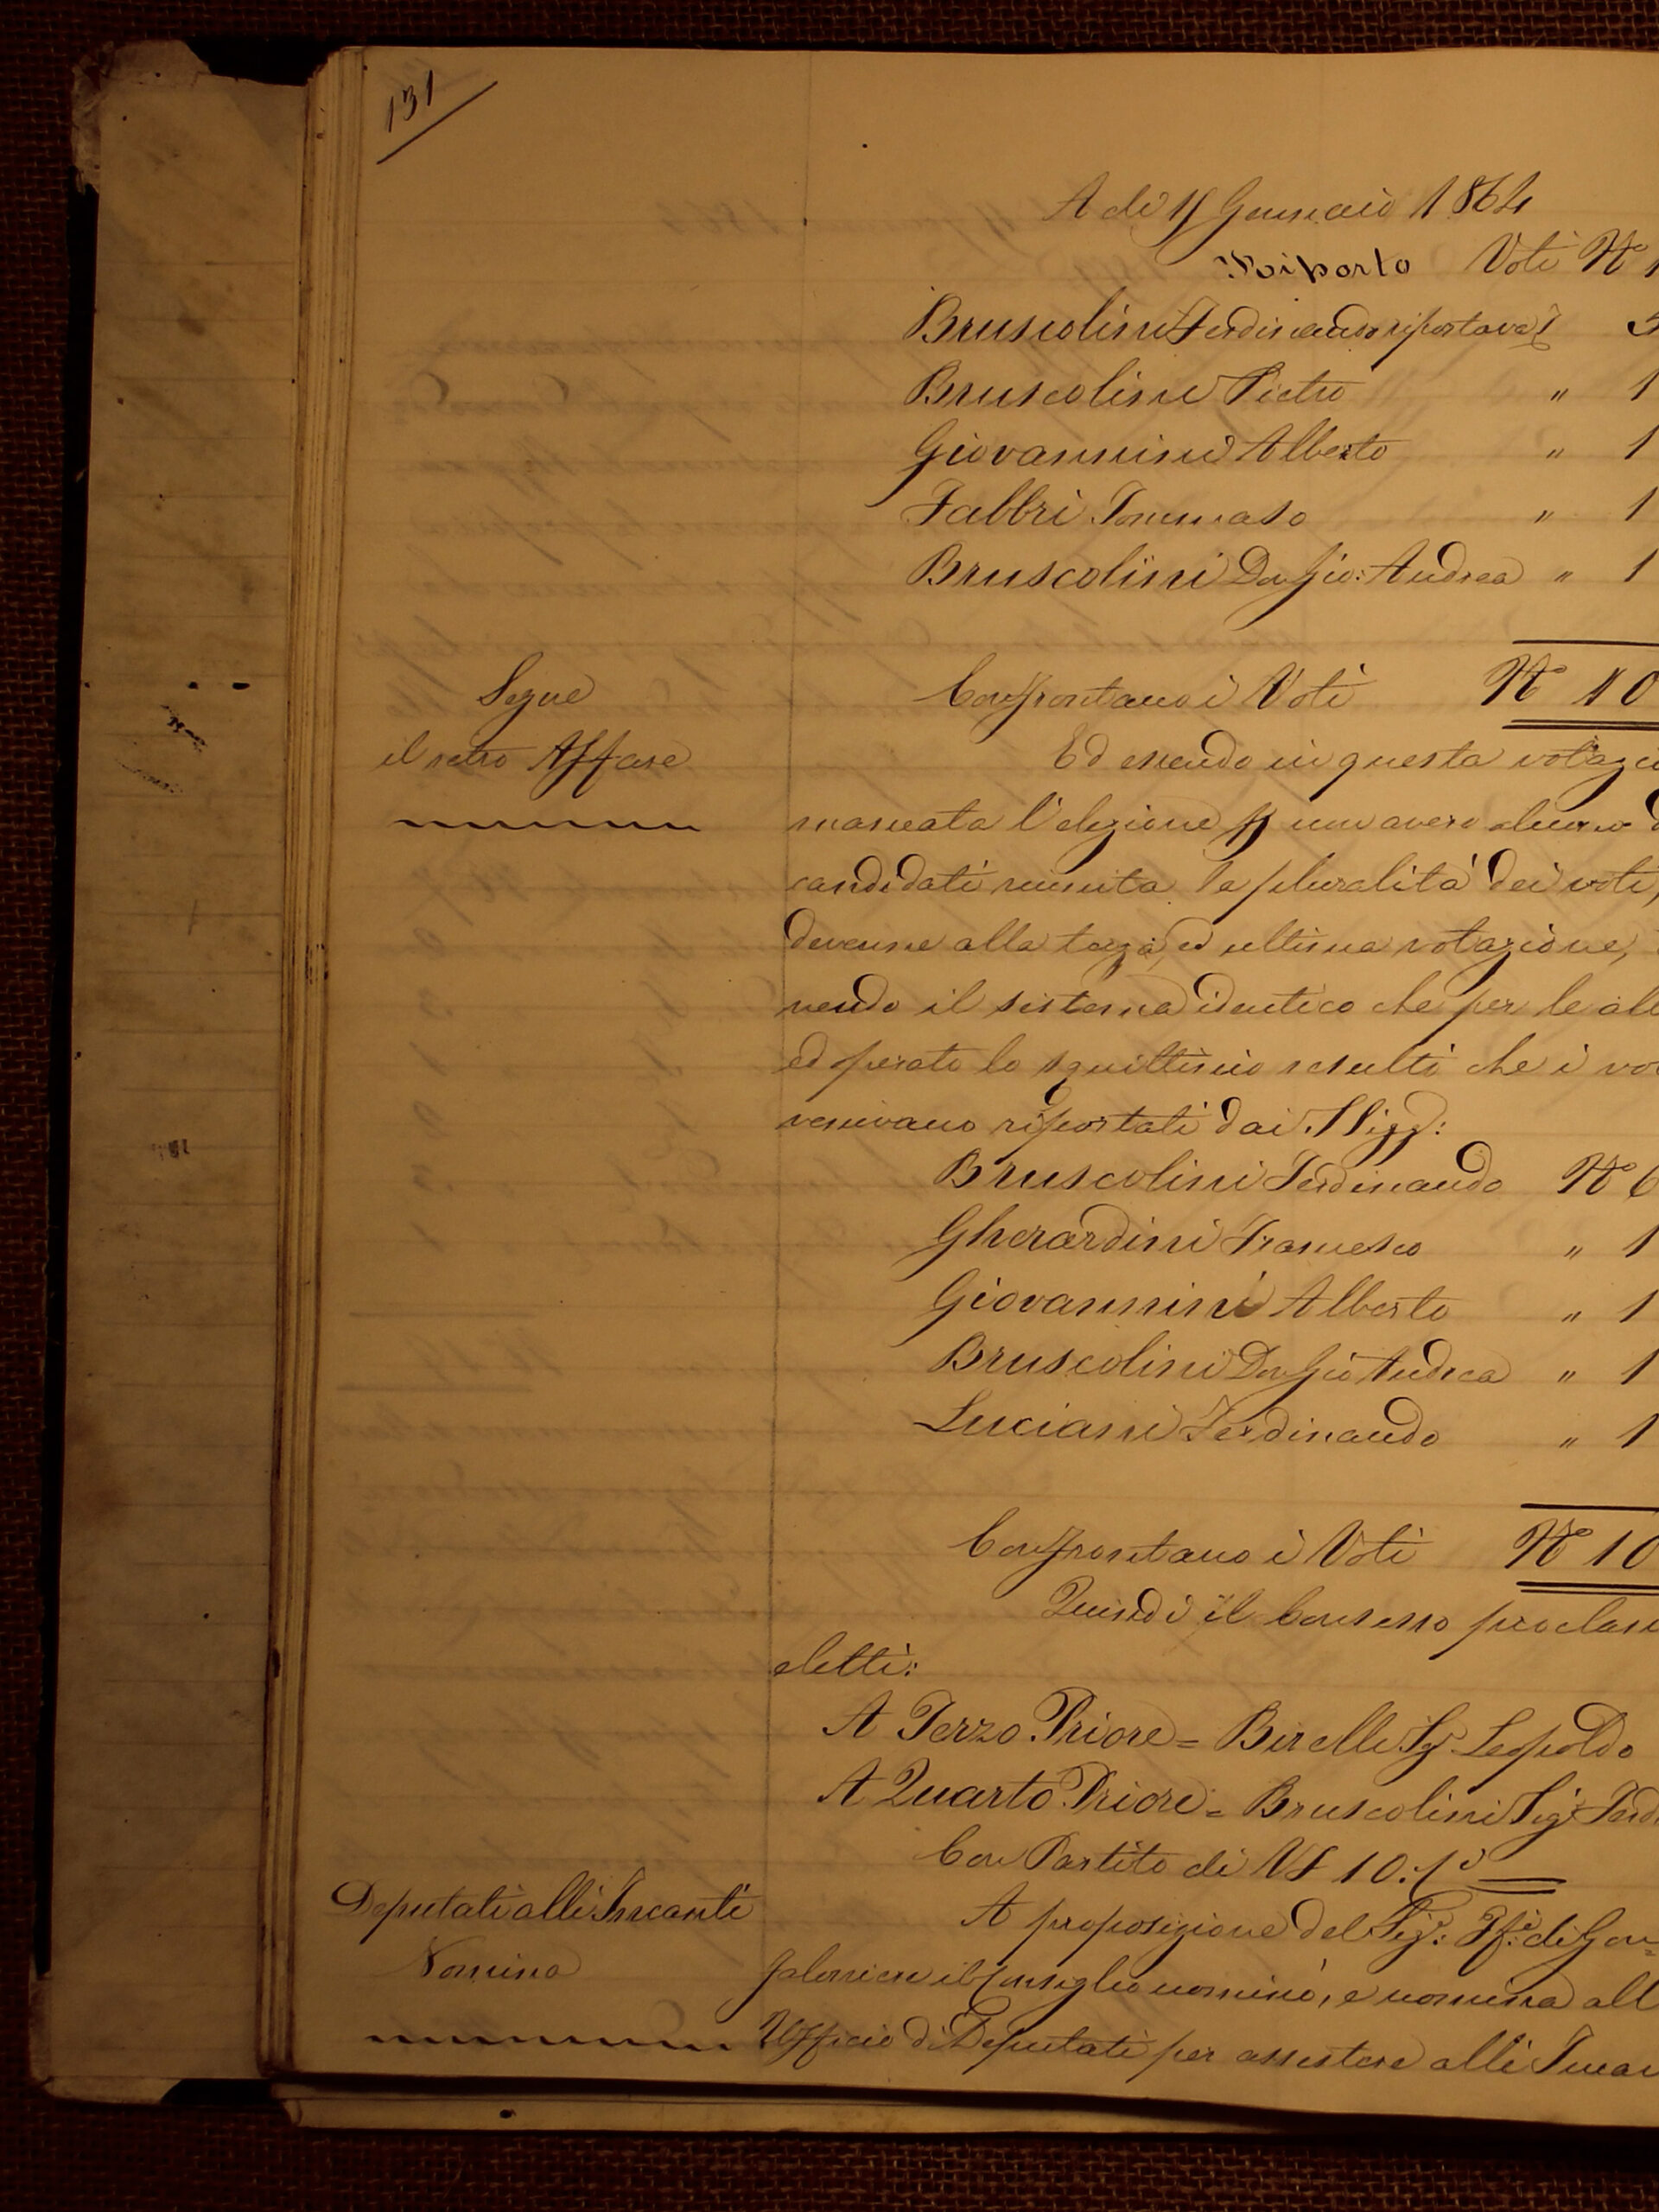 131
A dì 11 Gennaio 1864
Riporto Voti N° 1
Bruscolini Ferdinando riportava 5
Bruscolini Pietro " 1
Giovannini Alberto " 1
Fabbri Tommaso " 1
Bruscolini Don Gio: Andrea " 1
Segue
il retro Affare
Confrontano i Voti N° 10
Ed essendo in questa votazi
mancata l'elezione p non avere alcuno d
candidati riunita la pluralità dei voti,
devenne alla terza, ed ultima votazione,
nendo il sistema identico che per le alt
ed operato lo squittinio resultò che i vo
venivano riportati dai Sigg:
Bruscolini Ferdinando N° 6
Gherardini Francesco " 1
Giovannini Alberto " 1
Bruscolini Don Gio Andrea " 1
Luciani Ferdinando " 1
Confrontano i Voti N° 10
Quindi il Consesso proclam
eletti:
A Terzo Priore = Birelli Sig Leopoldo
A Quarto Priore = Bruscolini Sig Ferd
Con Partito di Vf 10.
Deputati alli Incanti
Nomina
A proposizione del Sig: Ff: di Gon=
faloniere il Consiglio nominò, e nomina all
Ufficio di Deputati per assistere alli Incan